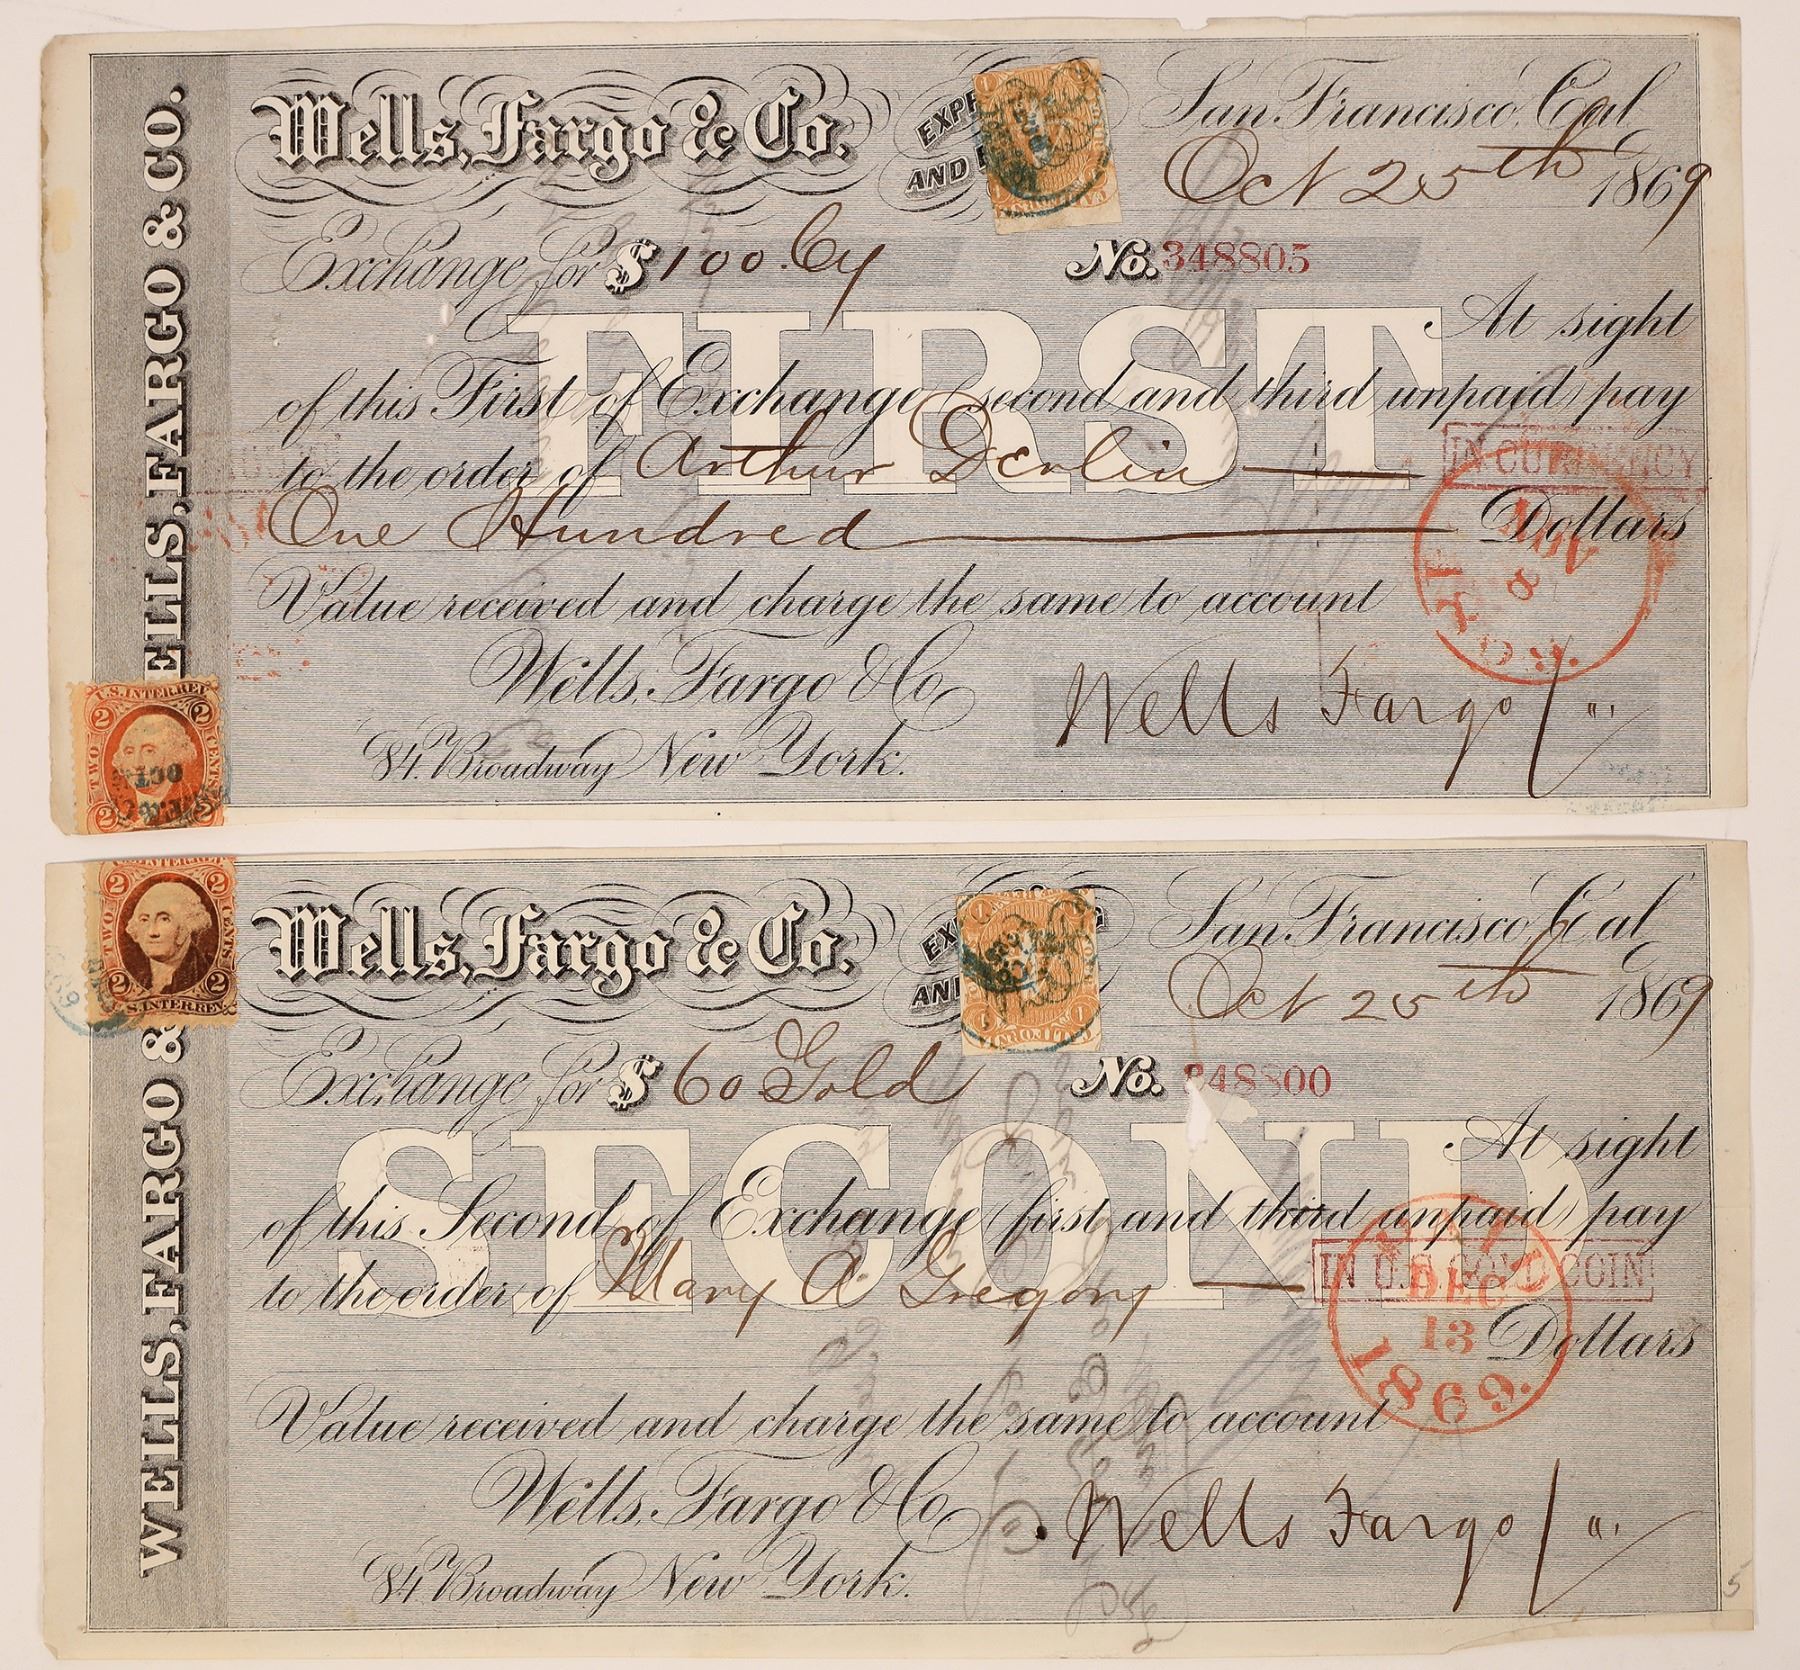 WELLS, FARGO & CO.
Wells, Fargo & Co.
AND
San Francisco, Cal
Oct 25th 1869
Exchange for $ 100. Cy
No. 348805
FIRST
At sight
of this First of Exchange (second and third unpaid) pay
to the order of Arthur Devlin
IN CURRENCY
One Hundred Dollars
NOV
8
Value received and charge the same to account
Wells, Fargo & Co
84 Broadway New York.
Wells Fargo
U.S. INTER. REV.
2 2
TWO CENTS
OCT
2 2
2 2
TWO CENTS
2 2
U.S. INTER. REV.
WELLS, FARGO &
Wells, Fargo & Co.
San Francisco, Cal
CALIFORNIA
Oct 25th 1869
Exchange for $ 60 Gold
No. 348800
SECOND
At sight
of this Second of Exchange (first and third unpaid) pay
to the order of Mary A Gregory
IN U.S. GOLD COIN
DEC
13
1869.
Dollars
Value received and charge the same to account
Wells, Fargo & Co
84 Broadway New York.
Wells Fargo
5